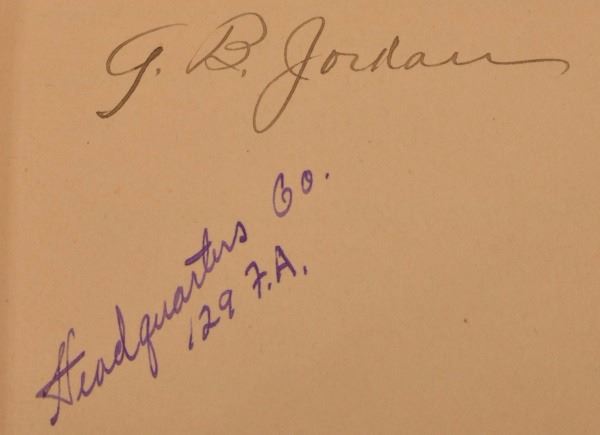 G. B. Jordan
Headquarters Co.
129 F.A.